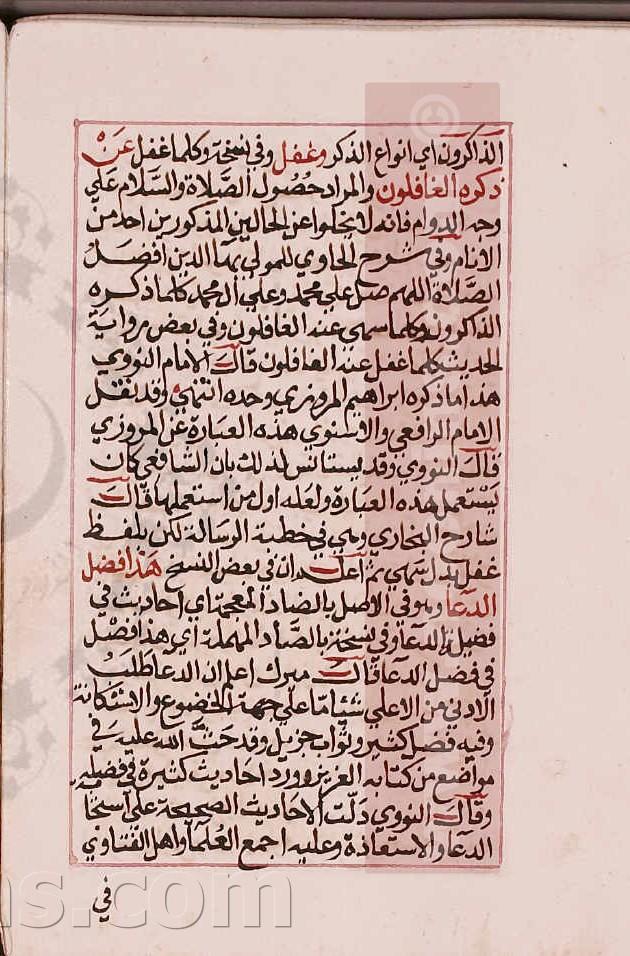 الذاكرون اي انواع الذكر وغفل وفي نسخة وكلما غفل عن
ذكره الغافلون والمراد حصول الصلاة والسلام علي
وجه الدوام فانه لا يخلوا عن الحالين المذكورين احد من
الانام وفي شرح الحاوي للمولي بهآ الدين افضل
الصلاة اللهم صل علي محمد وعلي ال محمد كلما ذكره
الذاكرون وكلما سهي عنه الغافلون وفي بعض رواية
الحديث كلما غفل عنه الغافلون قال الامام النووي
هذا ما ذكره ابراهيم المروزي وحده انتهي وقد نقل
الامام الرافعي والاسنوي هذه العبارة عن المروزي
قال النووي وقد يستانس لذلك بان الشافعي كان
يستعمل هذه العبارة ولعله اول من استعملها قال
شارح البخاري وهي في خطبة الرسالة لكن بلفظ
غفل بدل سهي ثم اعلم ان في بعض النسخ هذا فضل
الدعا وهو في الاصل بالضاد المعجمة اي احاديث في
فضيلة الدعا وفي نسخة بالصاد المهملة اي هذا فصل
في فضل الدعا قال ميرك اعلم ان الدعا طلب
الادني من الاعلي شيئا ما علي جهة الخضوع والاستكانة
وفيه فضل كثير وثواب جزيل وقد حث الله عليه في
مواضع من كتابه العزيز وورد احاديث كثيرة في فضيلته
وقال النووي دلت الاحاديث الصحيحة علي استحبا
الدعا والاستعاذة وعليه اجمع العلمآ واهل الفتاوي
في
ns.com